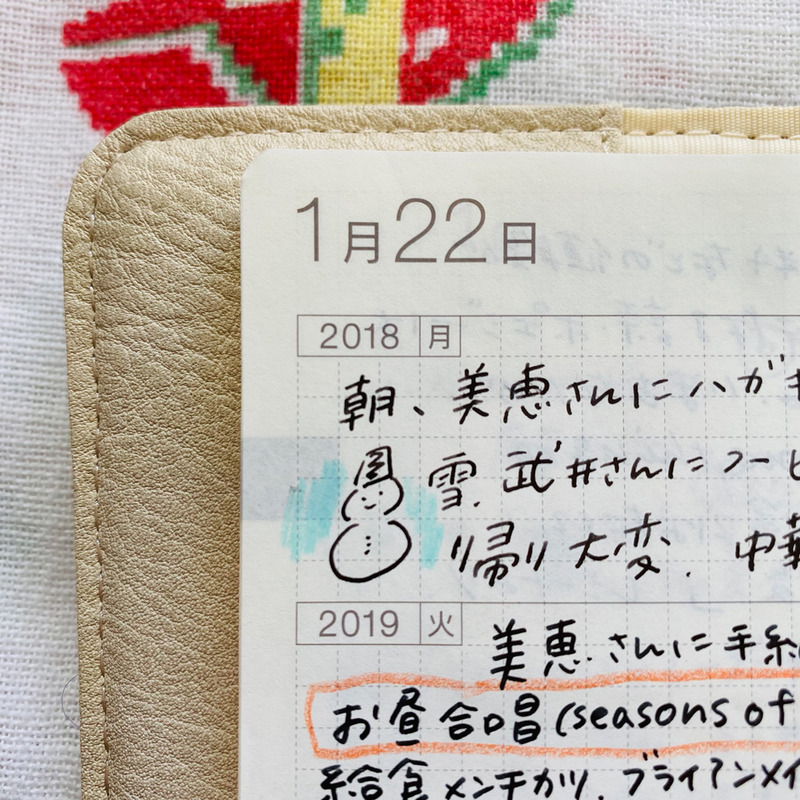 1月22日
2018 月
朝、美恵さんにハガキ
雪、武井さんにコーヒ
帰り大変. 中華
2019 火
美恵さんに手紙
お昼合唱(seasons of
給食メンチカツ. ブライアンメイ